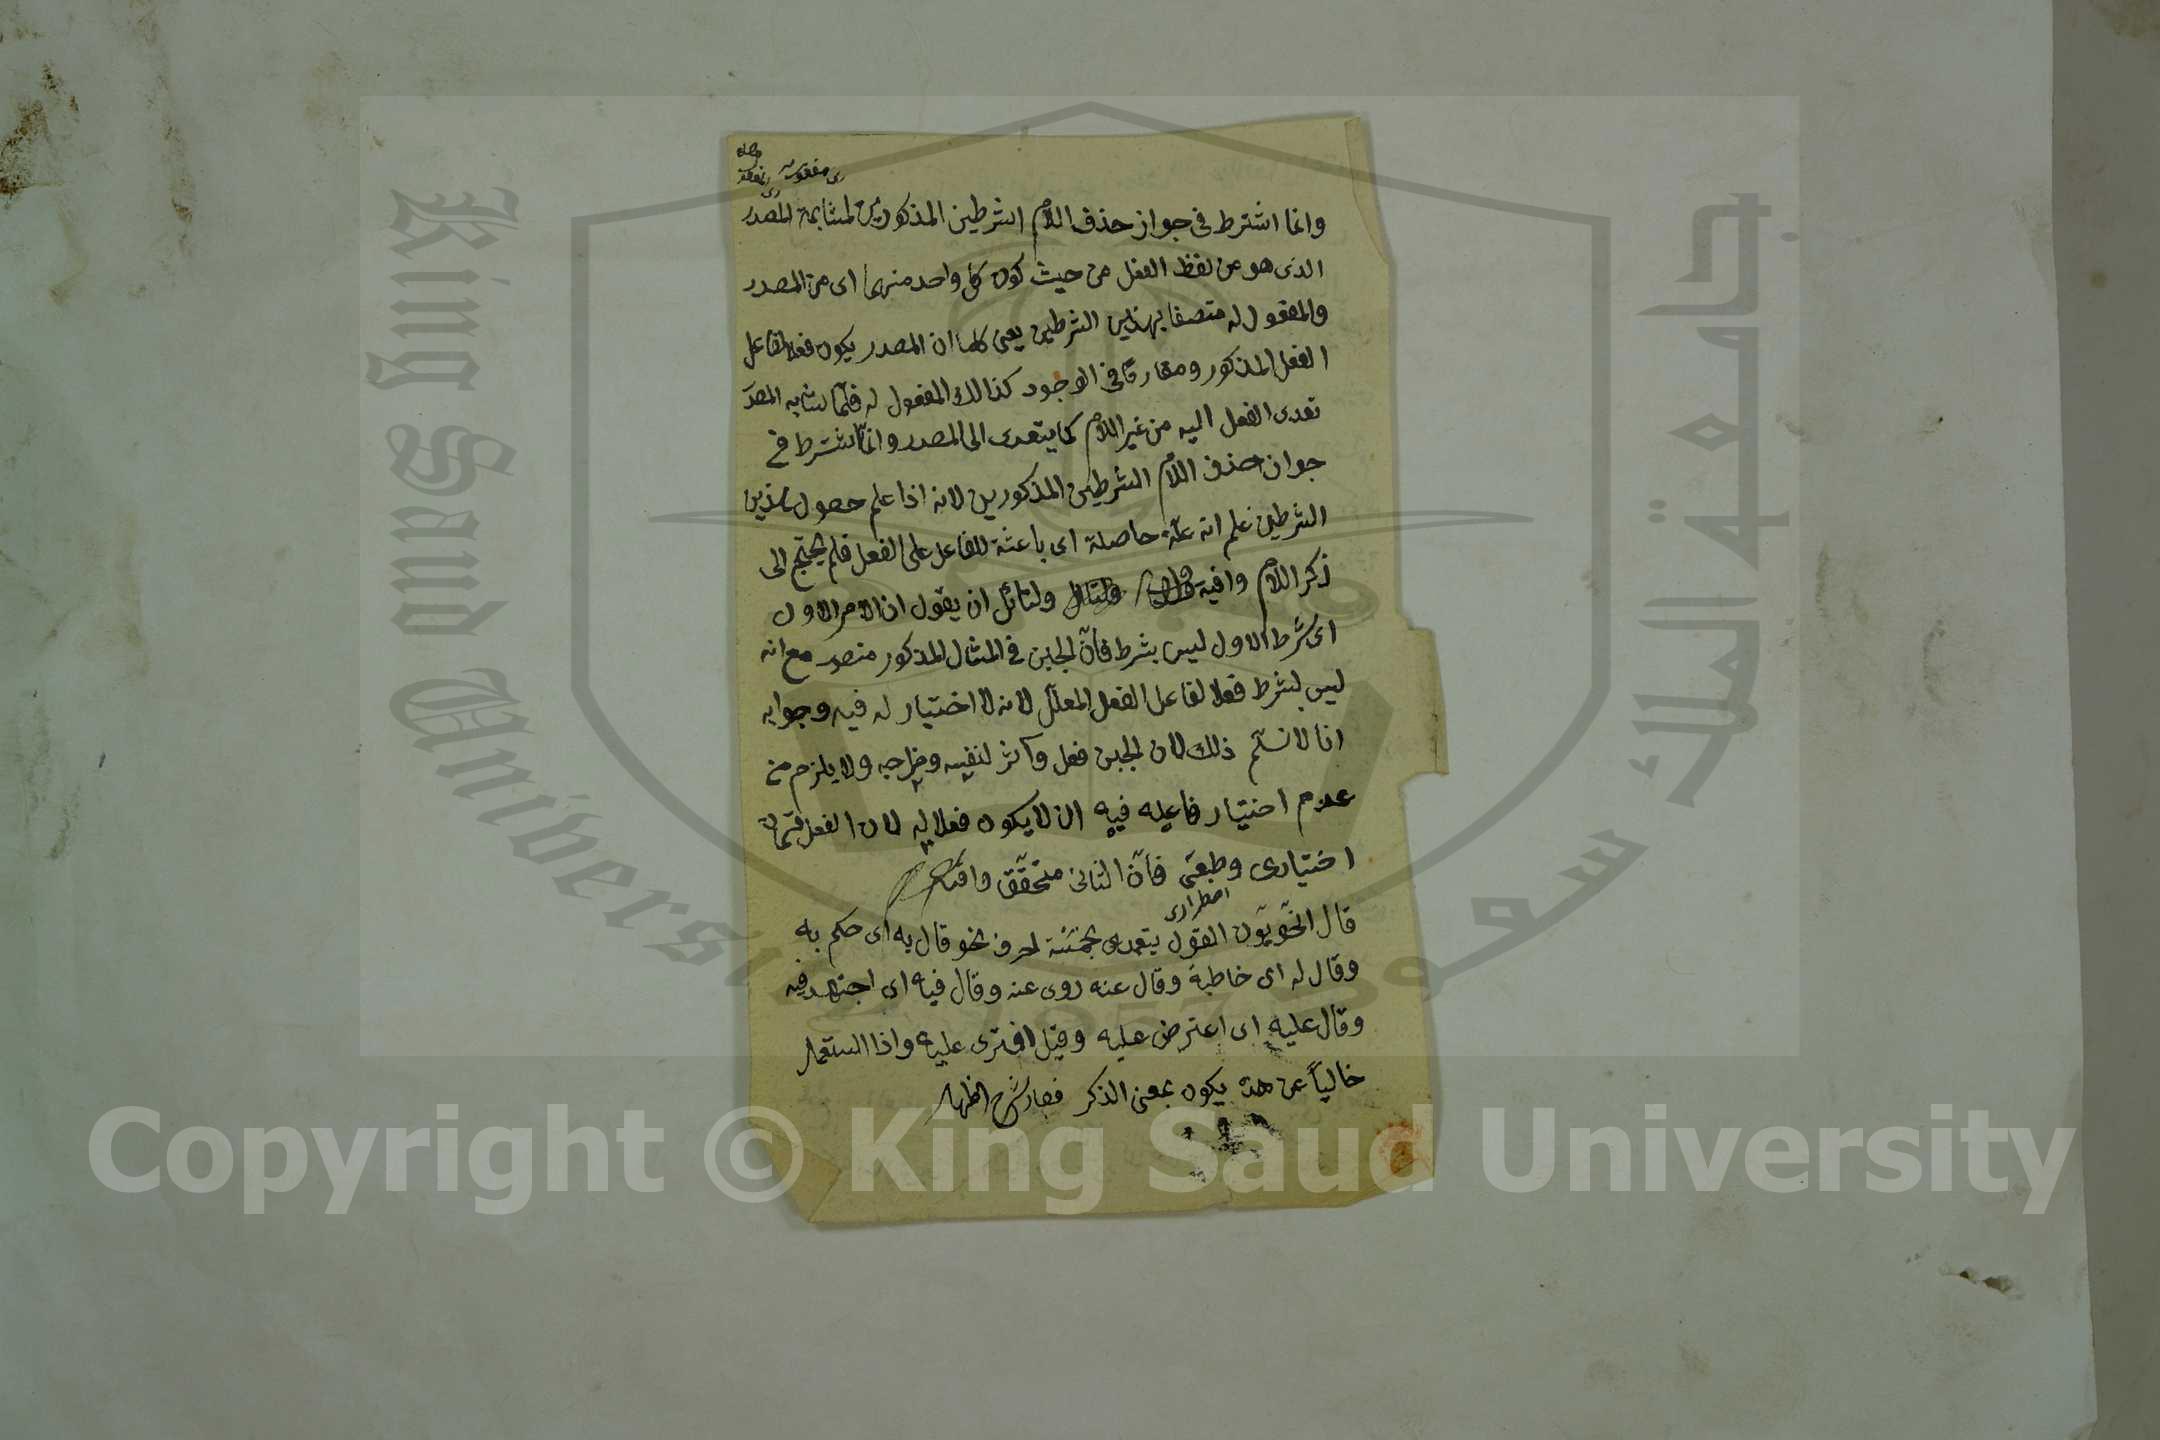 وانما اشترط فى جواز حذف اللام الشرطين المذكورين لمشابهة المصدر
الذى هو من لفظ الفعل من حيث كون كل واحد منهما اى من المصدر
والمفعول له متصفا بهذين الشرطين يعنى كما ان المصدر يكون فعلا لفاعل
الفعل المذكور ومقارنا فى الوجود كذالك المفعول له فلما شابه المصدر
تعدى الفعل اليه من غير اللام كما يتعدى الى المصدر وانما اشترط فى
جواز حذف اللام الشرطين المذكورين لانه اذا علم حصول هذين
الشرطين علم انه علة حاصلة اى باعثة للفاعل على الفعل فلم يحتج الى
ذكر اللام وافيه ولقائل ان يقول ان الامر الاول
اى شرط الاول ليس بشرط فان الجبن فى المثال المذكور منصوب مع انه
ليس بشرط فعلا لفاعل الفعل المعلل لانه لا اختيار له فيه وجوابه
انا لا نسلم ذلك لان الجبن فعل وآثر لنفسه ومزاجه ولا يلزم من
عدم اختيار فاعله فيه ان لا يكون فعلا له لان الفعل قسمان
اختيارى وطبعى فان الثانى متحقق وافيه
اضطرارى
قال النحويون القول يتعدى بخمسة احرف نحو قال به اى حكم به
وقال له اى خاطبه وقال عنه روى عنه وقال فيه اى اجتهد فيه
وقال عليه اى اعترض عليه وقيل افترى عليه واذا استعمل
خاليا عن هذه يكون بمعنى الذكر اظهار
جامعة الملك سعود
King Saud University
1957
Copyright © King Saud University